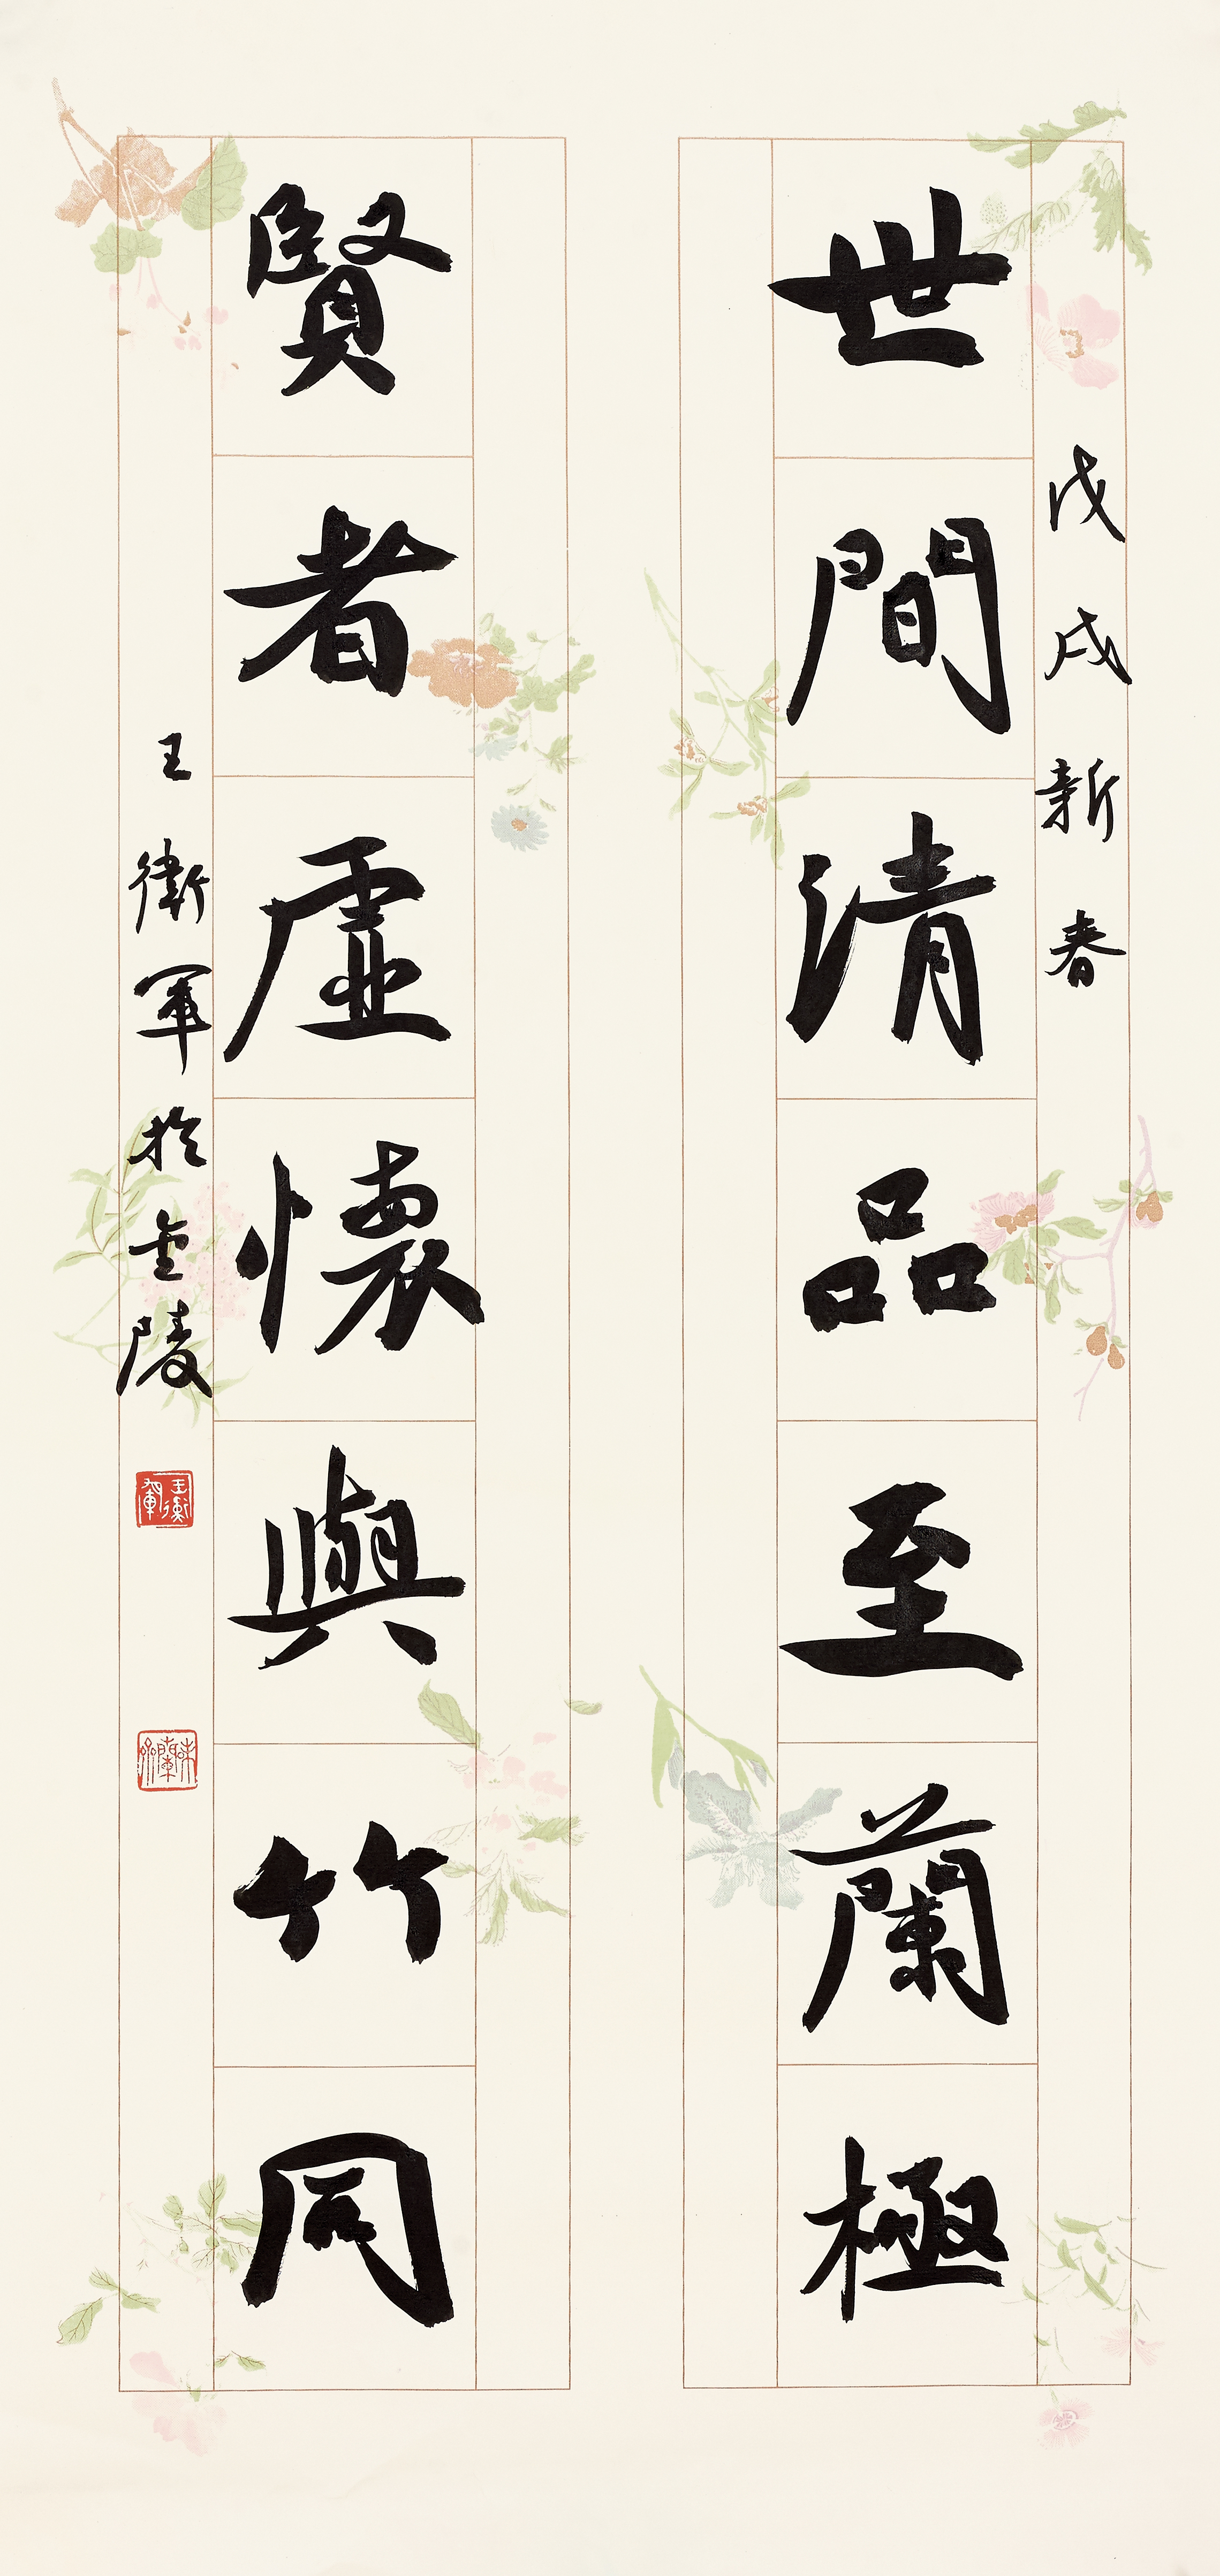 戊戌新春
世間清品至蘭極
賢者虛懷與竹同
王衛軍於金陵
王衛軍印